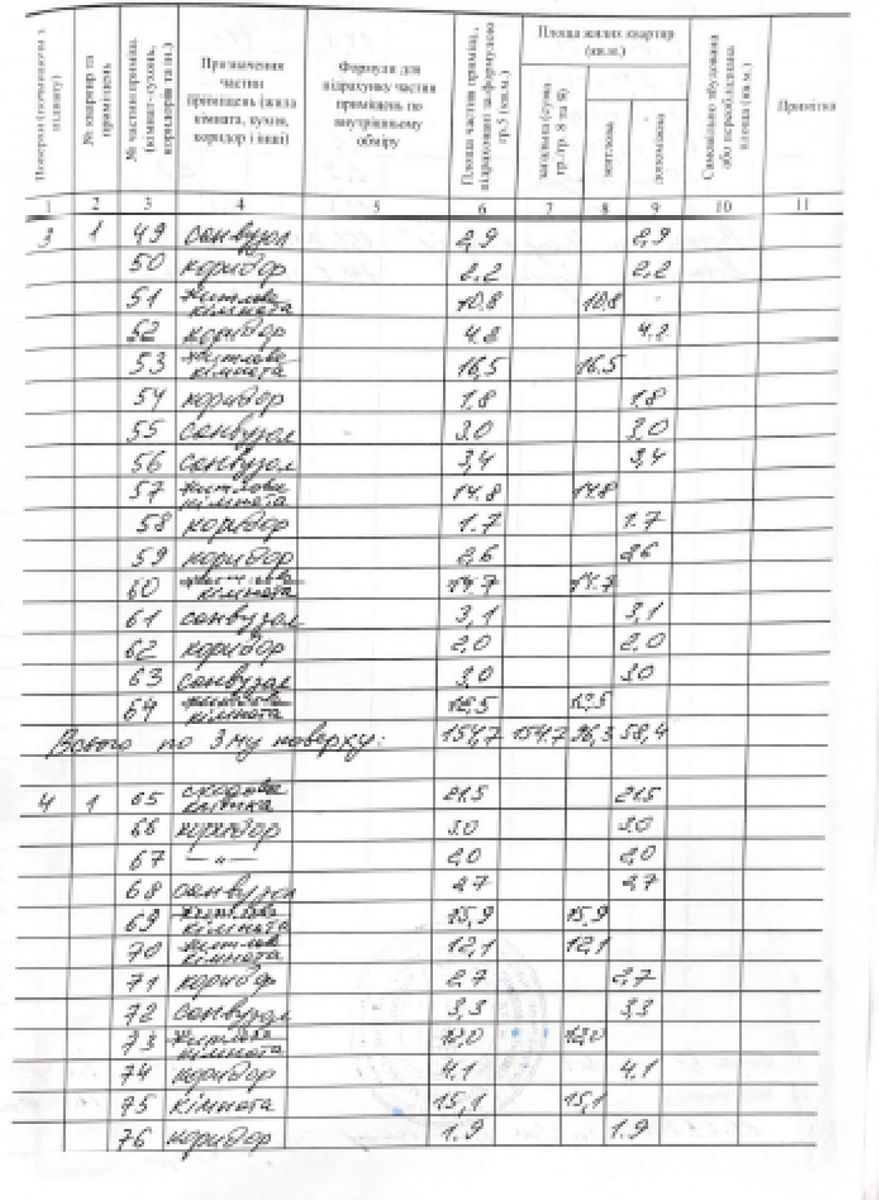 Поверхи (починаючи з підвалу)
№ квартир та приміщень
№ частин приміщ. (кімнат-кухонь, коридорів та ін.)
Призначення частин приміщень (жила кімната, кухня, коридор і інші)
Формули для підрахунку частин приміщень по внутрішньому обміру
Площа частин приміщ., підрахована за формулою гр.5 (кв.м.)
Площа жилих квартир (кв.м.)
загальна (сума гр./гр. 8 та 9)
житлова
допоміжна
Самовільно збудована або переобладнана площа (кв.м.)
Примітка
1 2 3 4 5 6 7 8 9 10 11
3 1 49 санвузол 2,9 2,9
50 коридор 2.2 2,2
51 житлова кімната 10.8 10.8 -
52 коридор 4.8 4.8
53 житлова кімната 16,5 16.5
54 коридор 1.8 1.8
55 санвузол 3.0 3,0
56 санвузол 3,4 3,4
57 житлова кімната 14.8 14.8
58 коридор 1.7 1.7
59 коридор 2,6 2,6
60 житлова кімната 14.7 14.7
61 санвузол 3,1 3,1
62 коридор 2,0 2,0
63 санвузол 3,0 3.0
64 житлова кімната
Всього по 3му поверху: 154,7 154.7 96,3 58,4
4 1 65 сходова клітка 21.5 21.5
66 коридор 3.0 3.0
67 — " — 2,0 2,0
68 санвузол 2.7 2.7
69 житлова кімната 15,9 15,9
70 житлова кімната 12,1 12,1
71 коридор 2,7 2,7
72 санвузол 3,3 3.3
73 житлова кімната
74 коридор 4.1 4.1
75 кімната 15,1 15,1
76 коридор 1.9 1.9